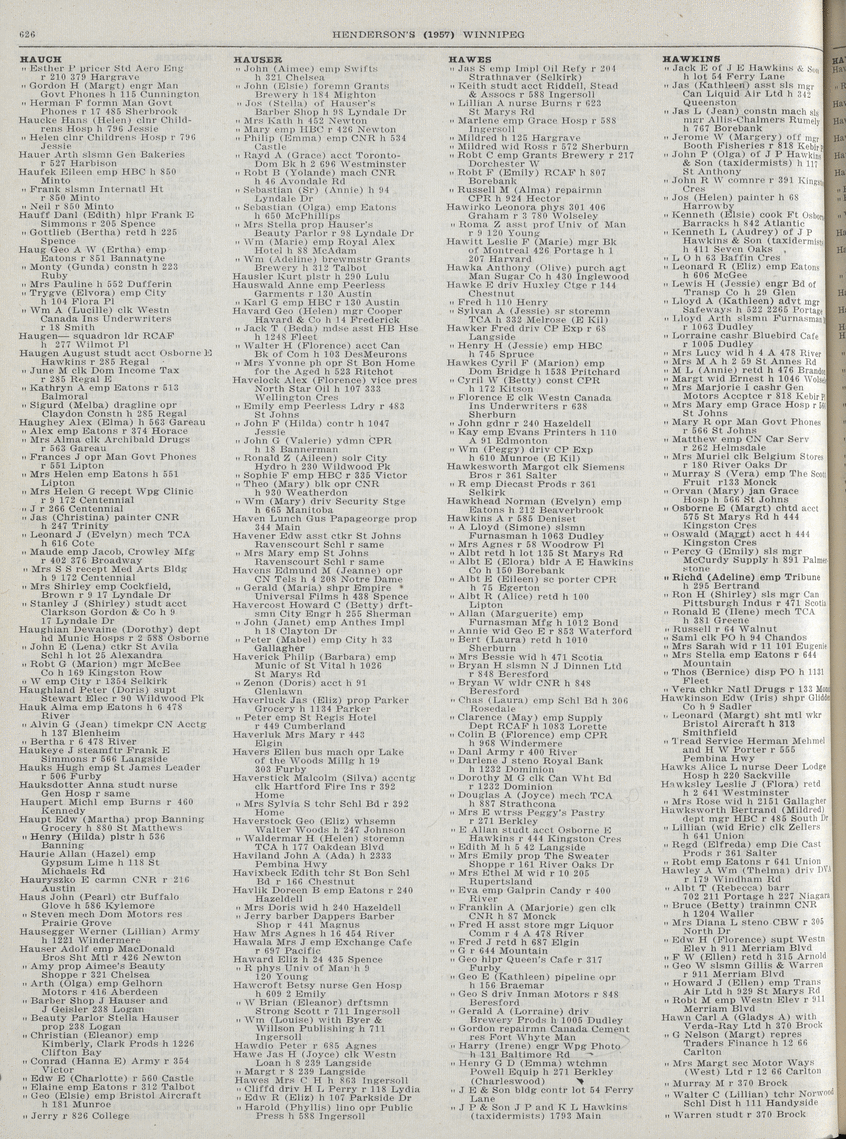 626
HENDERSON'S (1957) WINNIPEG
HAUCH
" Esther P pricer Std Aero Eng
r 210 379 Hargrave
" Gordon H (Margt) engr Man
Govt Phones h 115 Cunnington
" Herman F formn Man Govt
Phones r 17 485 Sherbrook
Haucke Hans (Helen) clnr Child-
rens Hosp h 796 Jessie
" Helen clnr Childrens Hosp r 796
Jessie
Hauer Arth slsmn Gen Bakeries
r 527 Harbison
Haufek Eileen emp HBC h 850
Minto
" Frank slsmn Internatl Ht
r 850 Minto
" Neil r 850 Minto
Hauff Danl (Edith) hlpr Frank E
Simmons r 205 Spence
" Gottlieb (Bertha) retd h 225
Spence
Haug Geo A W (Ertha) emp
Eatons r 851 Bannatyne
" Monty (Gunda) constn h 223
Ruby
" Mrs Pauline h 552 Dufferin
" Trygve (Elvora) emp City
h 104 Flora Pl
" Wm A (Lucille) clk Westn
Canada Ins Underwriters
r 18 Smith
Haugen— squadron ldr RCAF
h 277 Wilmot Pl
Haugen August studt acct Osborne E
Hawkins r 285 Regal
" June M clk Dom Income Tax
r 285 Regal E
" Kathryn A emp Eatons r 513
Balmoral
" Sigurd (Melba) dragline opr
Claydon Constn h 285 Regal
Haughey Alex (Elma) h 563 Gareau
" Alex emp Eatons r 374 Horace
" Mrs Alma clk Archibald Drugs
r 563 Gareau
" Frances J opr Man Govt Phones
r 551 Lipton
" Mrs Helen emp Eatons h 551
Lipton
" Mrs Helen G recept Wpg Clinic
r 9 172 Centennial
" J r 266 Centennial
" Jas (Christina) painter CNR
h 247 Trinity
" Leonard J (Evelyn) mech TCA
h 616 Cote
" Maude emp Jacob, Crowley Mfg
r 402 376 Broadway
" Mrs S S recept Med Arts Bldg
h 9 172 Centennial
" Mrs Shirley emp Cockfield,
Brown r 9 17 Lyndale Dr
" Stanley J (Shirley) studt acct
Clarkson Gordon & Co h 9
17 Lyndale Dr
Haughian Dewaine (Dorothy) dept
hd Munic Hosps r 2 588 Osborne
" John E (Lena) ctkr St Avila
Schl h lot 25 Alexandra
" Robt G (Marion) mgr McBee
Co h 169 Kingston Row
" W emp City r 1354 Selkirk
Haughland Peter (Doris) supt
Stewart Elec r 90 Wildwood Pk
Hauk Alma emp Eatons h 6 478
River
" Alvin G (Jean) timekpr CN Acctg
h 137 Blenheim
" Bertha r 6 478 River
Haukeye J steamftr Frank E
Simmons r 566 Langside
Hauks Hugh emp St James Leader
r 506 Furby
Hauksdotter Anna studt nurse
Gen Hosp r same
Haupert Michl emp Burns r 460
Kennedy
Haupt Edw (Martha) prop Banning
Grocery h 880 St Matthews
" Henry (Hilda) plstr h 536
Banning
Haurie Allan (Hazel) emp
Gypsum Lime h 118 St
Michaels Rd
Hauryszko E carmn CNR r 216
Austin
Haus John (Pearl) ctr Buffalo
Glove h 586 Kylemore
" Steven mech Dom Motors res
Prairie Grove
Hausegger Werner (Lillian) Army
h 1221 Windermere
Hauser Adolf emp MacDonald
Bros Sht Mtl r 426 Newton
" Amy prop Aimee's Beauty
Shoppe r 321 Chelsea
" Arth (Olga) emp Gelhorn
Motors r 416 Aberdeen
" Barber Shop J Hauser and
J Geisler 238 Logan
" Beauty Parlor Stella Hauser
prop 238 Logan
" Christian (Eleanor) emp
Kimberly, Clark Prods h 1226
Clifton Bay
" Conrad (Hanna E) Army r 354
Victor
" Edw E (Charlotte) r 560 Castle
" Elaine emp Eatons r 312 Talbot
" Geo (Elsie) emp Bristol Aircraft
h 181 Munroe
" Jerry r 826 College
HAUSER
" John (Aimee) emp Swifts
h 321 Chelsea
" John (Elsie) foremn Grants
Brewery h 184 Mighton
" Jos (Stella) of Hauser's
Barber Shop h 98 Lyndale Dr
" Mrs Kath h 452 Newton
" Mary emp HBC r 426 Newton
" Philip (Emma) emp CNR h 534
Castle
" Rayd A (Grace) acct Toronto-
Dom Bk h 2 696 Westminster
" Robt B (Yolande) mach CNR
h 46 Avondale Rd
" Sebastian (Sr) (Annie) h 94
Lyndale Dr
" Sebastian (Olga) emp Eatons
h 650 McPhillips
" Mrs Stella prop Hauser's
Beauty Parlor r 98 Lyndale Dr
" Wm (Marie) emp Royal Alex
Hotel h 88 McAdam
" Wm (Adeline) brewmstr Grants
Brewery h 312 Talbot
Hausler Kurt plstr h 290 Lulu
Hauswald Anne emp Peerless
Garments r 130 Austin
" Karl G emp HBC r 130 Austin
Havard Geo (Helen) mgr Cooper
Havard & Co h 14 Frederick
" Jack T (Beda) mdse asst HB Hse
h 1248 Fleet
" Walter H (Florence) acct Can
Bk of Com h 103 DesMeurons
" Mrs Yvonne ph opr St Bon Home
for the Aged h 523 Ritchot
Havelock Alex (Florence) vice pres
North Star Oil h 107 333
Wellington Cres
" Emily emp Peerless Ldry r 483
St Johns
" John F (Hilda) contr h 1047
Jessie
" John G (Valerie) ydmn CPR
h 18 Bannerman
" Ronald Z (Aileen) solr City
Hydro h 230 Wildwood Pk
" Sophie F emp HBC r 335 Victor
" Theo (Mary) blk opr CNR
h 930 Weatherdon
" Wm (Mary) driv Security Stge
h 665 Manitoba
Haven Lunch Gus Papageorge prop
344 Main
Havener Edw asst ctkr St Johns
Ravenscourt Schl r same
" Mrs Mary emp St Johns
Ravenscourt Schl r same
Havens Edmund M (Jeanne) opr
CN Tels h 4 208 Notre Dame
" Gerald (Maria) shpr Empire
Universal Films h 438 Spence
Havercost Howard C (Betty) drft-
smn City Engr h 255 Sherman
" John (Janet) emp Anthes Impl
h 18 Clayton Dr
" Peter (Mabel) emp City h 33
Gallagher
Haverick Philip (Barbara) emp
Munic of St Vital h 1026
St Marys Rd
" Zenon (Doris) acct h 91
Glenlawn
Haverluck Jas (Eliz) prop Parker
Grocery h 1134 Parker
" Peter emp St Regis Hotel
r 449 Cumberland
Haverluk Mrs Mary r 443
Elgin
Havers Ellen bus mach opr Lake
of the Woods Millg h 19
303 Furby
Haverstick Malcolm (Silva) accntg
clk Hartford Fire Ins r 392
Home
" Mrs Sylvia S tchr Schl Bd r 392
Home
Haverstock Geo (Eliz) whsemn
Walter Woods h 247 Johnson
" Waldermar H (Helen) storemn
TCA h 177 Oakdean Blvd
Haviland John A (Ada) h 2333
Pembina Hwy
Havixbeck Edith tchr St Bon Schl
Bd r 166 Chestnut
Havlik Doreen B emp Eatons r 240
Hazeldell
" Mrs Doris wid h 240 Hazeldell
" Jerry barber Dappers Barber
Shop r 441 Magnus
Haw Mrs Agnes h 16 454 River
Hawala Mrs J emp Exchange Cafe
r 697 Pacific
Haward Eliz h 24 435 Spence
" R phys Univ of Man h 9
120 Young
Hawcroft Betsy nurse Gen Hosp
h 609 2 Emily
" W Brian (Eleanor) drftsmn
Strong Scott r 711 Ingersoll
" Wm (Louise) with Byer &
Willson Publishing h 711
Ingersoll
Hawdio Peter r 685 Agnes
Hawe Jas H (Joyce) clk Westn
Loan h 8 239 Langside
" Margt r 8 239 Langside
Hawes Mrs C H h 863 Ingersoll
" Cliffd driv H L Perry r 118 Lydia
" Edw R (Eliz) h 107 Parkside Dr
" Harold (Phyllis) lino opr Public
Press h 588 Ingersoll
HAWES
" Jas S emp Impl Oil Refy r 204
Strathnaver (Selkirk)
" Keith studt acct Riddell, Stead
& Assocs r 588 Ingersoll
" Lillian A nurse Burns r 623
St Marys Rd
" Marlene emp Grace Hosp r 588
Ingersoll
" Mildred h 125 Hargrave
" Mildred wid Ross r 572 Sherburn
" Robt C emp Grants Brewery r 217
Dorchester W
" Robt F (Emily) RCAF h 807
Borebank
" Russell M (Alma) repairmn
CPR h 924 Hector
Hawirko Leonora phys 301 406
Graham r 3 780 Wolseley
" Roma Z asst prof Univ of Man
r 9 120 Young
Hawitt Leslie F (Marie) mgr Bk
of Montreal 426 Portage h 1
207 Harvard
Hawka Anthony (Olive) purch agt
Man Sugar Co h 430 Inglewood
Hawke E driv Huxley Ctge r 144
Chestnut
" Fred h 110 Henry
" Sylvan A (Jessie) sr storemn
TCA h 332 Melrose (E Kil)
Hawker Fred driv CP Exp r 68
Langside
" Henry H (Jessie) emp HBC
h 745 Spruce
Hawkes Cyril F (Marion) emp
Dom Bridge h 1538 Pritchard
" Cyril W (Betty) const CPR
h 172 Kitson
" Florence E clk Westn Canada
Ins Underwriters r 638
Sherburn
" John gdnr r 240 Hazeldell
" Kay emp Evans Printers h 110
A 91 Edmonton
" Wm (Peggy) driv CP Exp
h 610 Munroe (E Kil)
Hawkesworth Margot clk Siemens
Bros r 361 Salter
" R emp Diecast Prods r 361
Selkirk
Hawkhead Norman (Evelyn) emp
Eatons h 212 Beaverbrook
Hawkins A r 585 Deniset
" A Lloyd (Simone) slsmn
Furnasman h 1063 Dudley
" Mrs Agnes r 58 Woodrow Pl
" Albt retd h lot 135 St Marys Rd
" Albt E (Elora) bldr A E Hawkins
Co h 150 Borebank
" Albt E (Eileen) sc porter CPR
h 75 Egerton
" Albt R (Alice) retd h 100
Lipton
" Allan (Marguerite) emp
Furnasman Mfg h 1012 Bond
" Annie wid Geo E r 853 Waterford
" Bert (Laura) retd h 1010
Sherburn
" Mrs Bessie wid h 471 Scotia
" Bryan H slsmn N J Dinnen Ltd
r 848 Beresford
" Bryan W wldr CNR h 848
Beresford
" Chas (Laura) emp Schl Bd h 306
Rosedale
" Clarence (May) emp Supply
Dept RCAF h 1083 Lorette
" Colin B (Florence) emp CPR
h 968 Windermere
" Danl Army r 400 River
" Darlene J steno Royal Bank
h 1232 Dominion
" Dorothy M G clk Can Wht Bd
r 1232 Dominion
" Douglas A (Joyce) mech TCA
h 887 Strathcona
" Mrs E wtrss Peggy's Pastry
r 271 Berkley
" E Allan studt acct Osborne E
Hawkins r 444 Kingston Cres
" Edith M h 5 42 Langside
" Mrs Emily prop The Sweater
Shoppe r 161 River Oaks Dr
" Mrs Ethel M wid r 10 205
Rupertsland
" Eva emp Galprin Candy r 400
River
" Franklin A (Marjorie) gen clk
CNR h 87 Monck
" Fred H asst store mgr Liquor
Comm r 4 A 478 River
" Fred J retd h 687 Elgin
" G r 644 Mountain
" Geo hlpr Queen's Cafe r 317
Furby
" Geo E (Kathleen) pipeline opr
h 156 Braemar
" Geo S driv Inman Motors r 848
Beresford
" Gerald A (Lorraine) driv
Brewery Prods h 1005 Dudley
" Gordon repairmn Canada Cement
res Fort Whyte Man
" Harry (Irene) engr Wpg Photo
h 131 Baltimore Rd
" Henry G D (Emma) wtchmn
Powell Equip h 271 Berkley
(Charleswood)
" J E & Son bldg contr lot 54 Ferry
Lane
" J P & Son J P and K L Hawkins
(taxidermists) 1793 Main
HAWKINS
" Jack E of J E Hawkins & Son
h lot 54 Ferry Lane
" Jas (Kathleen) asst sls mgr
Can Liquid Air Ltd h 342
Queenston
" Jas L (Jean) constn mach sls
mgr Allis-Chalmers Rumely
h 767 Borebank
" Jerome W (Margery) off mgr
Booth Fisheries r 818 Kebir
" John P (Olga) of J P Hawkins
& Son (taxidermists) h 117
St Anthony
" John R W comnre r 391 Kingston
Cres
" Jos (Helen) painter h 68
Harrowby
" Kenneth (Elsie) cook Ft Osborne
Barracks h 842 Atlantic
" Kenneth L (Audrey) of J P
Hawkins & Son (taxidermists
h 411 Seven Oaks
" L O h 63 Baffin Cres
" Leonard R (Eliz) emp Eatons
h 606 McGee
" Lewis H (Jessie) engr Bd of
Transp Co h 29 Glen
" Lloyd A (Kathleen) advt mgr
Safeways h 522 2265 Portage
" Lloyd Arth slsmn Furnasman
r 1063 Dudley
" Lorraine cashr Bluebird Cafe
r 1005 Dudley
" Mrs Lucy wid h 4 A 478 River
" Mrs M A h 2 59 St Annes Rd
" M L (Annie) retd h 476 Brandon
" Margt wid Ernest h 1046 Wolseley
" Mrs Marjorie l cashr Gen
Motors Accptce r 818 Kebir Pl
" Mrs Mary emp Grace Hosp r
St Johns
" Mary R opr Man Govt Phones
r 566 St Johns
" Matthew emp CN Car Serv
r 262 Helmsdale
" Mrs Muriel clk Belgium Stores
r 180 River Oaks Dr
" Murray S (Vera) emp The Scott
Fruit r133 Monck
" Orvan (Mary) jan Grace
Hosp h 566 St Johns
" Osborne E (Margt) chtd acct
575 St Marys Rd h 444
Kingston Cres
" Oswald (Margt) acct h 444
Kingston Cres
" Percy G (Emily) sls mgr
McCurdy Supply h 891 Palmer-
stone
" Richd (Adeline) emp Tribune
h 295 Bertrand
" Ron H (Shirley) sls mgr Can
Pittsburgh Indus r 471 Scotia
" Ronald E (Ilene) mech TCA
h 381 Greene
" Russell r 64 Walnut
" Saml clk PO h 94 Chandos
" Mrs Sarah wid r 11 101 Eugenie
" Mrs Stella emp Eatons r 644
Mountain
" Thos (Bernice) disp PO h 1131
Fleet
" Vera chkr Natl Drugs r 133 Monck
Hawkinson Edw (Iris) shpr Glidden
Co h 9 Sadler
" Leonard (Margt) sht mtl wkr
Bristol Aircraft h 313
Smithfield
" Tread Service Herman Mehmel
and H W Porter r 555
Pembina Hwy
Hawks Alice L nurse Deer Lodge
Hosp h 220 Sackville
Hawksley Leslie J (Flora) retd
h 2 641 Westminster
" Mrs Rose wid h 2151 Gallagher
Hawksworth Bertrand (Mildred)
dept mgr HBC r 485 South Dr
" Lillian (wid Eric) clk Zellers
h 641 Union
" Regd (Elfreda) emp Die Cast
Prods r 361 Salter
" Robt emp Eatons r 641 Union
Hawley A Wm (Thelma) driv DVA
r 179 Windham Rd
" Albt T (Rebecca) barr
702 211 Portage h 227 Niagara
" Bruce (Betty) trainmn CNR
h 1204 Waller
" Mrs Diana L steno CBW r 305
North Dr
" Edw H (Florence) supt Westn
Elev h 911 Merriam Blvd
" F W (Ellen) retd h 315 Arnold
" Geo W slsmn Gillis & Warren
r 911 Merriam Blvd
" Howard J (Ellen) emp Trans
Air Ltd h 929 St Marys Rd
" Robt M emp Westn Elev r 911
Merriam Blvd
Hawn Carl A (Gladys A) with
Verda-Ray Ltd h 370 Brock
" G Nelson (Margt) repres
Traders Finance h 12 66
Carlton
" Mrs Margt sec Motor Ways
(West) Ltd r 12 66 Carlton
" Murray M r 370 Brock
" Walter C (Lillian) tchr Norwood
Schl Dist h 111 Handyside
" Warren studt r 370 Brock